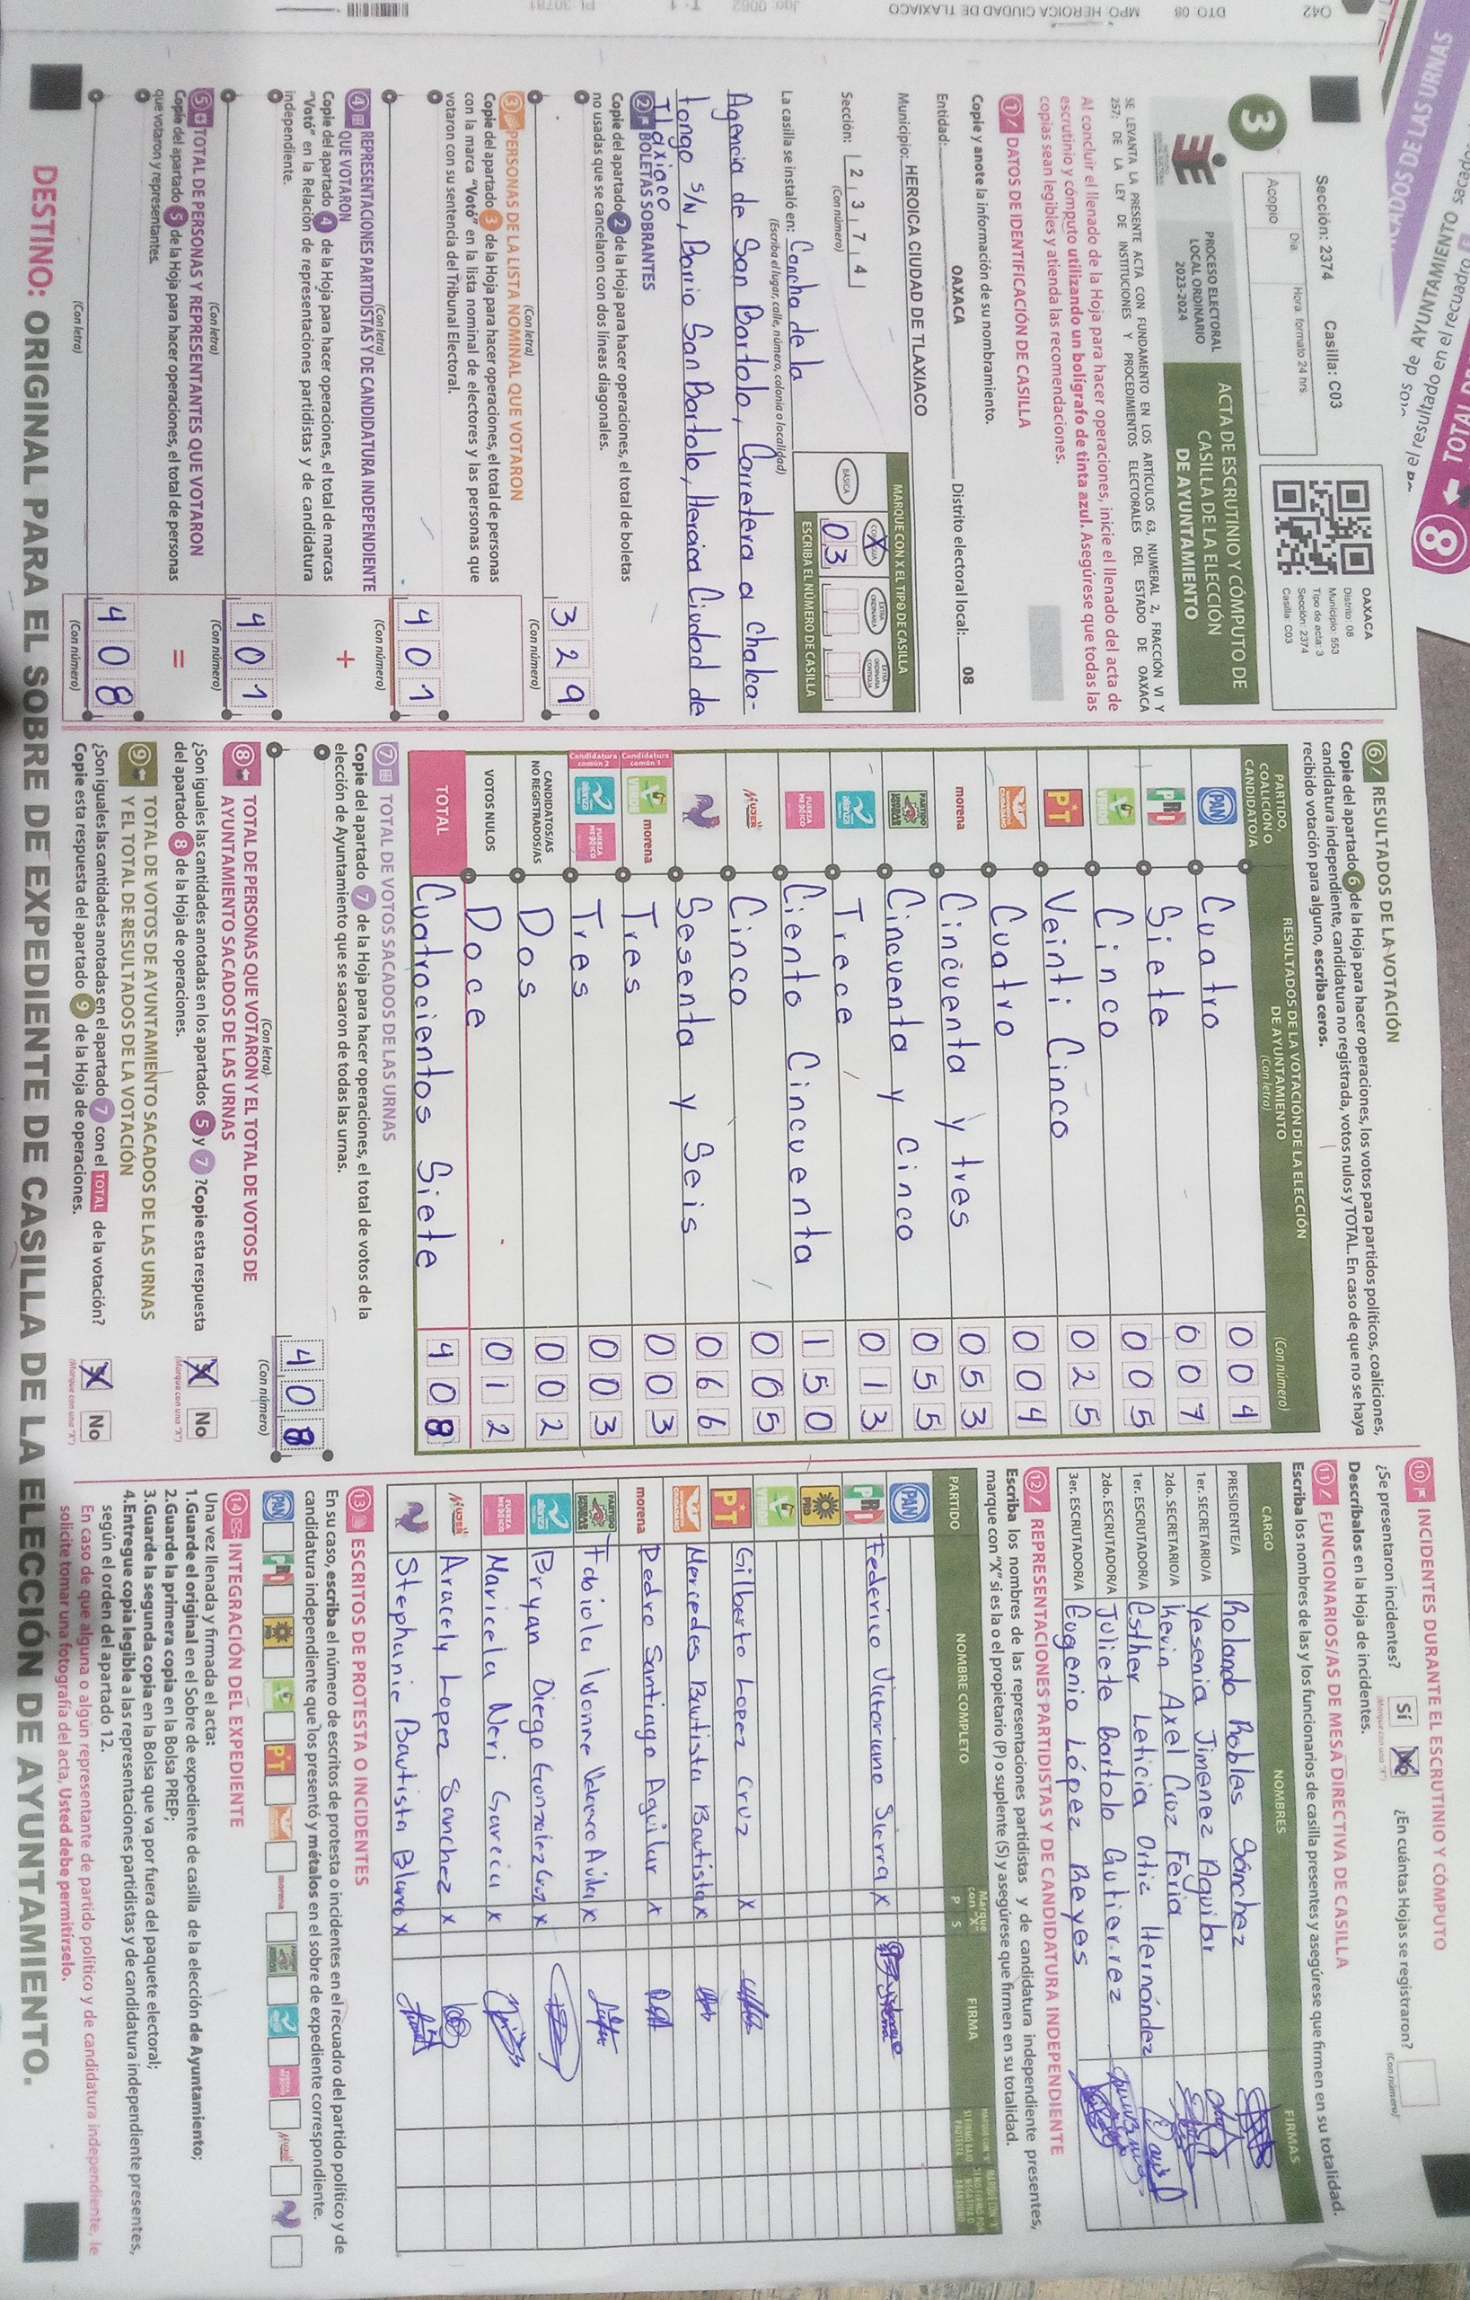 TOTAL
8
SACADOS DE LAS URNAS
Sección: 2374 Casilla: C03
OAXACA
Distrito: 08
Municipio: 553
Tipo de acta: 3
Sección: 2374
Casilla: C03
Acopio
Día
Hora: formato 24 hrs
3
PROCESO ELECTORAL
LOCAL ORDINARIO
2023-2024
ACTA DE ESCRUTINIO Y CÓMPUTO DE
CASILLA DE LA ELECCIÓN
DE AYUNTAMIENTO
SE LEVANTA LA PRESENTE ACTA CON FUNDAMENTO EN LOS ARTÍCULOS 63, NUMERAL 2, FRACCIÓN VI Y
257; DE LA LEY DE INSTITUCIONES Y PROCEDIMIENTOS ELECTORALES DEL ESTADO DE OAXACA
Al concluir el llenado de la Hoja para hacer operaciones, inicie el llenado del acta de
escrutinio y cómputo utilizando un bolígrafo de tinta azul. Asegúrese que todas las
copias sean legibles y atienda las recomendaciones.
1 DATOS DE IDENTIFICACIÓN DE CASILLA
Copie y anote la información de su nombramiento.
Entidad: OAXACA Distrito electoral local: 08
Municipio: HEROICA CIUDAD DE TLAXIACO
Sección: 2 3 7 4
(Con número)
MARQUE CON X EL TIPO DE CASILLA
BÁSICA
ESCRIBA EL NÚMERO DE CASILLA
03
La casilla se instaló en: Cancha de la
(Escriba el lugar, calle, número, colonia o localidad)
Agencia de San Bartolo, Carretera a Chalca-
tongo S/N, Barrio San Bartolo, Heroica Ciudad de
Tlaxiaco
2 BOLETAS SOBRANTES
Copie del apartado 2 de la Hoja para hacer operaciones, el total de boletas
no usadas que se cancelaron con dos líneas diagonales.
329
(Con letra) (Con número)
3 PERSONAS DE LA LISTA NOMINAL QUE VOTARON
Copie del apartado 3 de la Hoja para hacer operaciones, el total de personas
con la marca "Votó" en la lista nominal de electores y las personas que
votaron con su sentencia del Tribunal Electoral.
401
(Con letra) (Con número)
4 REPRESENTACIONES PARTIDISTAS Y DE CANDIDATURA INDEPENDIENTE
QUE VOTARON
Copie del apartado 4 de la Hoja para hacer operaciones, el total de marcas
"Votó" en la Relación de representaciones partidistas y de candidatura
independiente.
+
(Con letra) (Con número)
5 TOTAL DE PERSONAS Y REPRESENTANTES QUE VOTARON
Copie del apartado 5 de la Hoja para hacer operaciones, el total de personas
que votaron y representantes.
=
408
(Con letra) (Con número)
6 RESULTADOS DE LA VOTACIÓN
Copie del apartado 6 de la Hoja para hacer operaciones, los votos para partidos políticos, coaliciones,
candidatura independiente, candidatura no registrada, votos nulos y TOTAL. En caso de que no se haya
recibido votación para alguno, escriba ceros.
PARTIDO,
COALICIÓN O
CANDIDATO/A
RESULTADOS DE LA VOTACIÓN DE LA ELECCIÓN
DE AYUNTAMIENTO
(Con letra)
(Con número)
PAN Cuatro 004
PRI Siete 007
VERDE Cinco 005
PT Veinti Cinco 025
Cuatro 004
morena Cincuenta y tres 053
Cincuenta y Cinco 055
alianza Trece 013
FUERZA MÉXICO Ciento Cincuenta 150
MUJER Cinco 005
Sesenta y Seis 066
Candidatura común 1 VERDE morena Tres 003
Candidatura común 2 alianza FUERZA MÉXICO Tres 003
CANDIDATOS/AS
NO REGISTRADOS/AS Dos 002
VOTOS NULOS Doce 012
TOTAL Cuatrocientos Siete 408
7 TOTAL DE VOTOS SACADOS DE LAS URNAS
Copie del apartado 7 de la Hoja para hacer operaciones, el total de votos de la
elección de Ayuntamiento que se sacaron de todas las urnas.
408
(Con letra) (Con número)
8 TOTAL DE PERSONAS QUE VOTARON Y EL TOTAL DE VOTOS DE
AYUNTAMIENTO SACADOS DE LAS URNAS
¿Son iguales las cantidades anotadas en los apartados 5 y 7 ? Copie esta respuesta
del apartado 8 de la Hoja de operaciones.
No
(Marque con una "X")
9 TOTAL DE VOTOS DE AYUNTAMIENTO SACADOS DE LAS URNAS
Y EL TOTAL DE RESULTADOS DE LA VOTACIÓN
¿Son iguales las cantidades anotadas en el apartado 7 con el TOTAL de la votación?
Copie esta respuesta del apartado 9 de la Hoja de operaciones.
No
(Marque con una "X")
10 INCIDENTES DURANTE EL ESCRUTINIO Y CÓMPUTO
¿Se presentaron incidentes? Sí No ¿En cuántas Hojas se registraron?
(Marque con una "X") (Con número)
Descríbalos en la Hoja de incidentes.
11 FUNCIONARIOS/AS DE MESA DIRECTIVA DE CASILLA
Escriba los nombres de las y los funcionarios de casilla presentes y asegúrese que firmen en su totalidad.
CARGO NOMBRES FIRMAS
PRESIDENTE/A Rolando Robles Sánchez
1er. SECRETARIO/A Yesenia Jimenez Aguilar
2do. SECRETARIO/A Kevin Axel Cruz Feria
1er. ESCRUTADOR/A Esther Leticia Ortiz Hernández
2do. ESCRUTADOR/A Juliete Bartolo Gutierrez
3er. ESCRUTADOR/A Eugenio López Reyes
12 REPRESENTACIONES PARTIDISTAS Y DE CANDIDATURA INDEPENDIENTE
Escriba los nombres de las representaciones partidistas y de candidatura independiente presentes,
marque con "X" si es la o el propietario (P) o suplente (S) y asegúrese que firmen en su totalidad.
PARTIDO NOMBRE COMPLETO Marque con "X" P S FIRMA
PAN
PRI Federico Victoriano Sierra X
PRD
VERDE
PT Gilberto Lopez Cruz X
Mercedes Bautista Bautista X
morena Pedro Santiago Aguilar X
Fabiola Ivonne Velasco Avila X
alianza Bryan Diego Gonzalez Cruz X
FUERZA MÉXICO Maricela Neri Garcia X
MUJER Aracely Lopez Sanchez X
Stephanie Bautista Blanco X
13 ESCRITOS DE PROTESTA O INCIDENTES
En su caso, escriba el número de escritos de protesta o incidentes en el recuadro del partido político y de
candidatura independiente que los presentó y métalos en el sobre de expediente correspondiente.
PAN PRI PT morena
14 INTEGRACIÓN DEL EXPEDIENTE
Una vez llenada y firmada el acta:
1.Guarde el original en el Sobre de expediente de casilla de la elección de Ayuntamiento;
2.Guarde la primera copia en la Bolsa PREP;
3.Guarde la segunda copia en la Bolsa que va por fuera del paquete electoral;
4.Entregue copia legible a las representaciones partidistas y de candidatura independiente presentes,
según el orden del apartado 12.
En caso de que alguna o algún representante de partido político y de candidatura independiente, le
solicite tomar una fotografía del acta, Usted debe permitírselo.
DESTINO: ORIGINAL PARA EL SOBRE DE EXPEDIENTE DE CASILLA DE LA ELECCIÓN DE AYUNTAMIENTO.